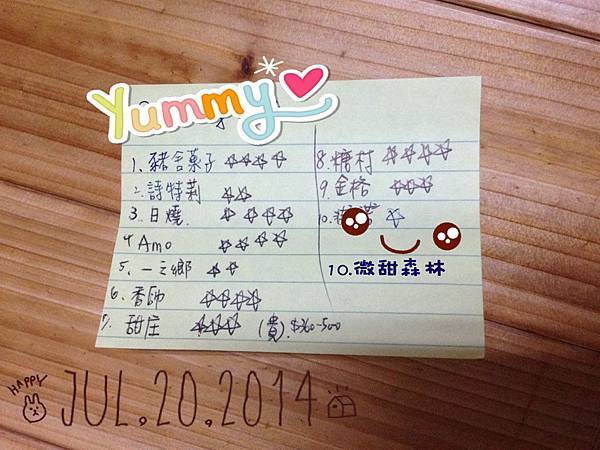 Yummy
1. 豬舍菓子 ☆☆☆☆
2. 詩特莉 ☆☆
3. 日燒 ☆☆☆☆
4 Amo ☆☆☆☆
5. 一之鄉 ☆☆
6. 香帥 ☆☆☆☆
7. 甜庄 ☆☆☆ (貴). $360-500
8. 糖村 ☆☆☆☆
9. 金格 ☆☆☆
10. ☆
10.微甜森林
HAPPY
JUL.20.2014